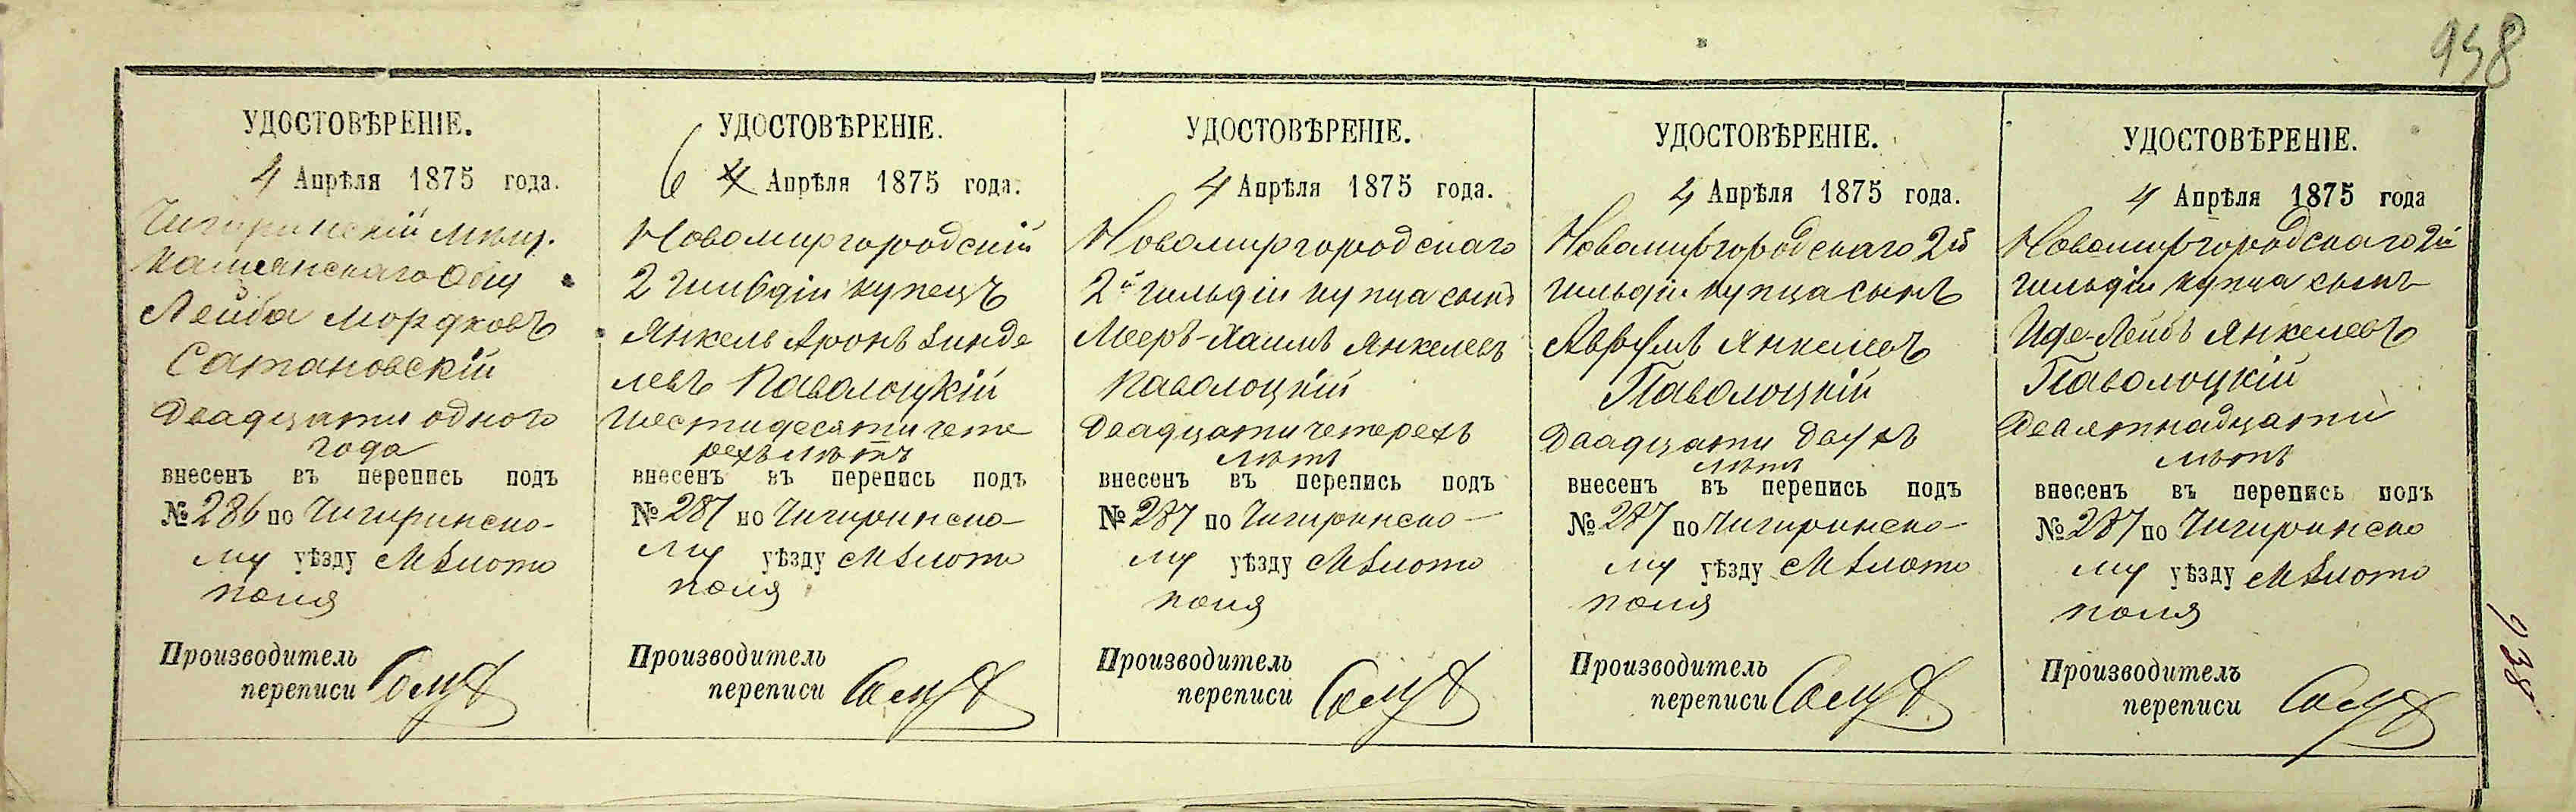 958
УДОСТОВѢРЕНІЕ.
4 Апрѣля 1875 года.
Чигиринскій мѣщ.
Камянскаго Общ
Лейба Мордковъ
Сатановскій
Двадцати одного
года
внесенъ въ перепись подъ
№ 286 по Чигиринско-
му уѣзду М Злото
поля
Производитель
переписи
УДОСТОВѢРЕНІЕ.
6 4 Апрѣля 1875 года.
Новомиргородскій
2 Гильдіи купецъ
Янкель Аронъ Зинде
левъ Паволоцкій
Шестидесяти чете
рехъ лѣтъ
внесенъ въ перепись подъ
№ 287 по Чигиринско-
му уѣзду М Злото
поля
Производитель
переписи
УДОСТОВѢРЕНІЕ.
4 Апрѣля 1875 года.
Новомиргородскаго
2й гильдіи купца сынъ
Мееръ-Хаимъ Янкелевъ
Паволоцкій
Двадцати четерехъ
лѣтъ
внесенъ въ перепись подъ
№ 287 по Чигиринско-
му уѣзду М Злото
поля
Производитель
переписи
УДОСТОВѢРЕНІЕ.
4 Апрѣля 1875 года.
Новомиргородскаго 2й
гильдіи купца сынъ
Аврумъ Янкелевъ
Паволоцкій
Двадцати двухъ
лѣтъ
внесенъ въ перепись подъ
№ 287 по Чигиринско-
му уѣзду М Злото
поля
Производитель
переписи
УДОСТОВѢРЕНІЕ.
4 Апрѣля 1875 года
Новомиргородскаго 2й
гильдіи купца сынъ
Иде-Лейбъ Янкелевъ
Паволоцкій
Девятнадцати
лѣтъ
внесенъ въ перепись подъ
№ 287 по Чигиринско
му уѣзду М Злото
поля
Производитель
переписи
938